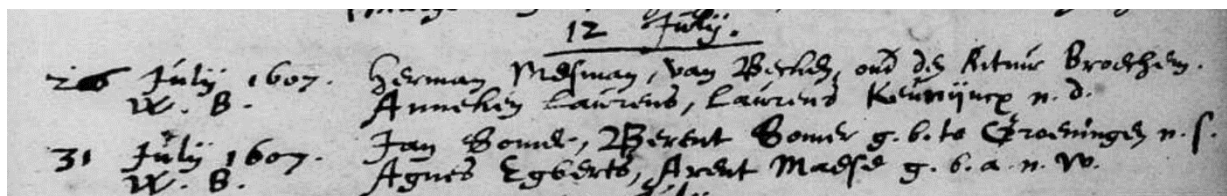 12 Julij.
26 Julij 1607. Herman Mesman, van Bechey, ond dey Ritmr Broechem.
W. B. Anneken Laurens, Laurens Keunijncx n. d.
31 Julij 1607. Jan Somer, Berent Somer g. b. to Groeningen n. s.
W. B. Agnes Egberts, Arent Maese g. b. a. n. W.